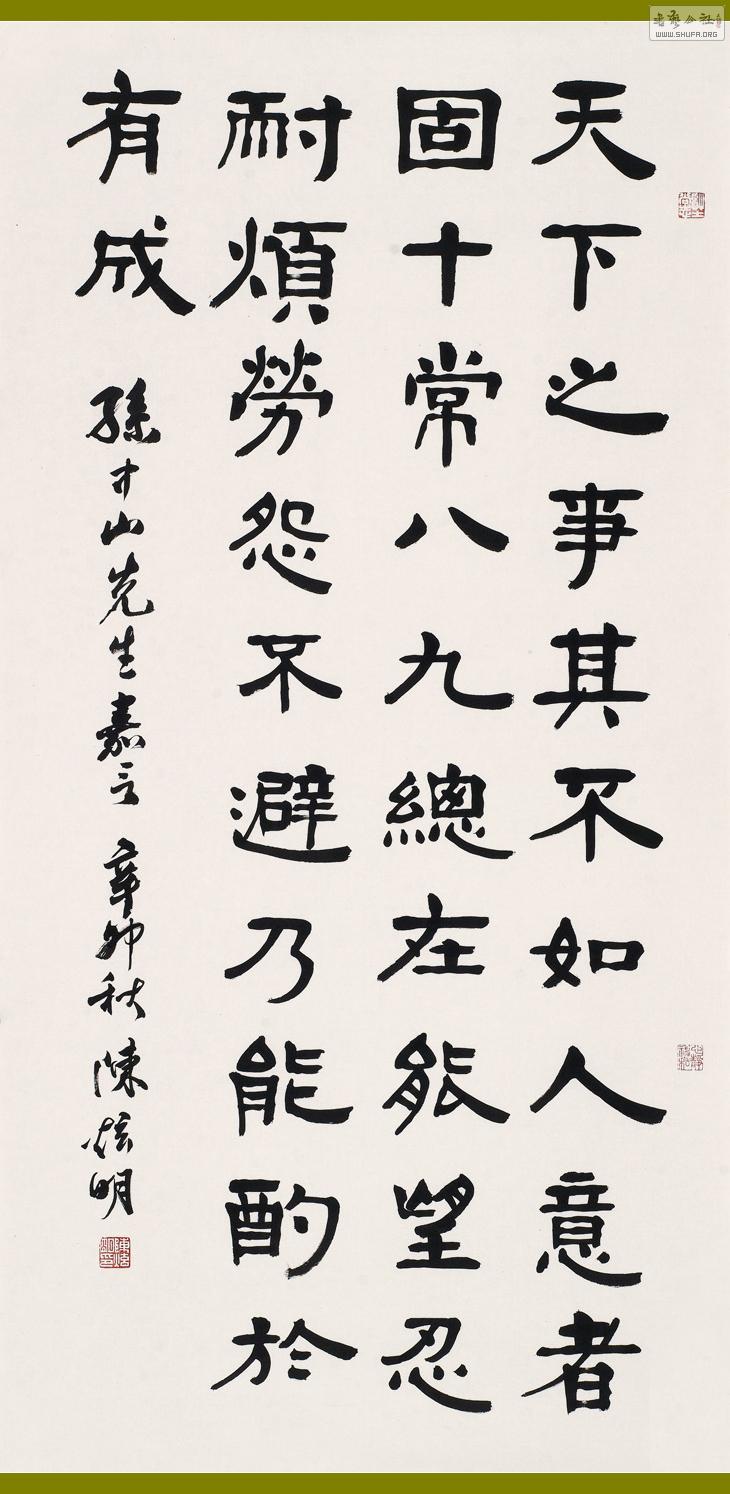 天下之事其不如人意者
固十常八九總在能望忍
耐煩勞怨不避乃能酌於
有成
孫中山先生嘉言 辛卯秋 陳炫明
WWW.SHUFA.ORG